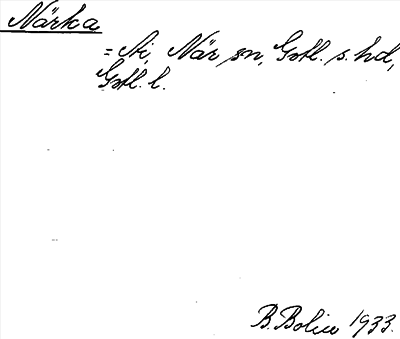 Närka
= Ai, När sn, Gotl. s. hd,
Gotl. l.
B. Bolin 1933.